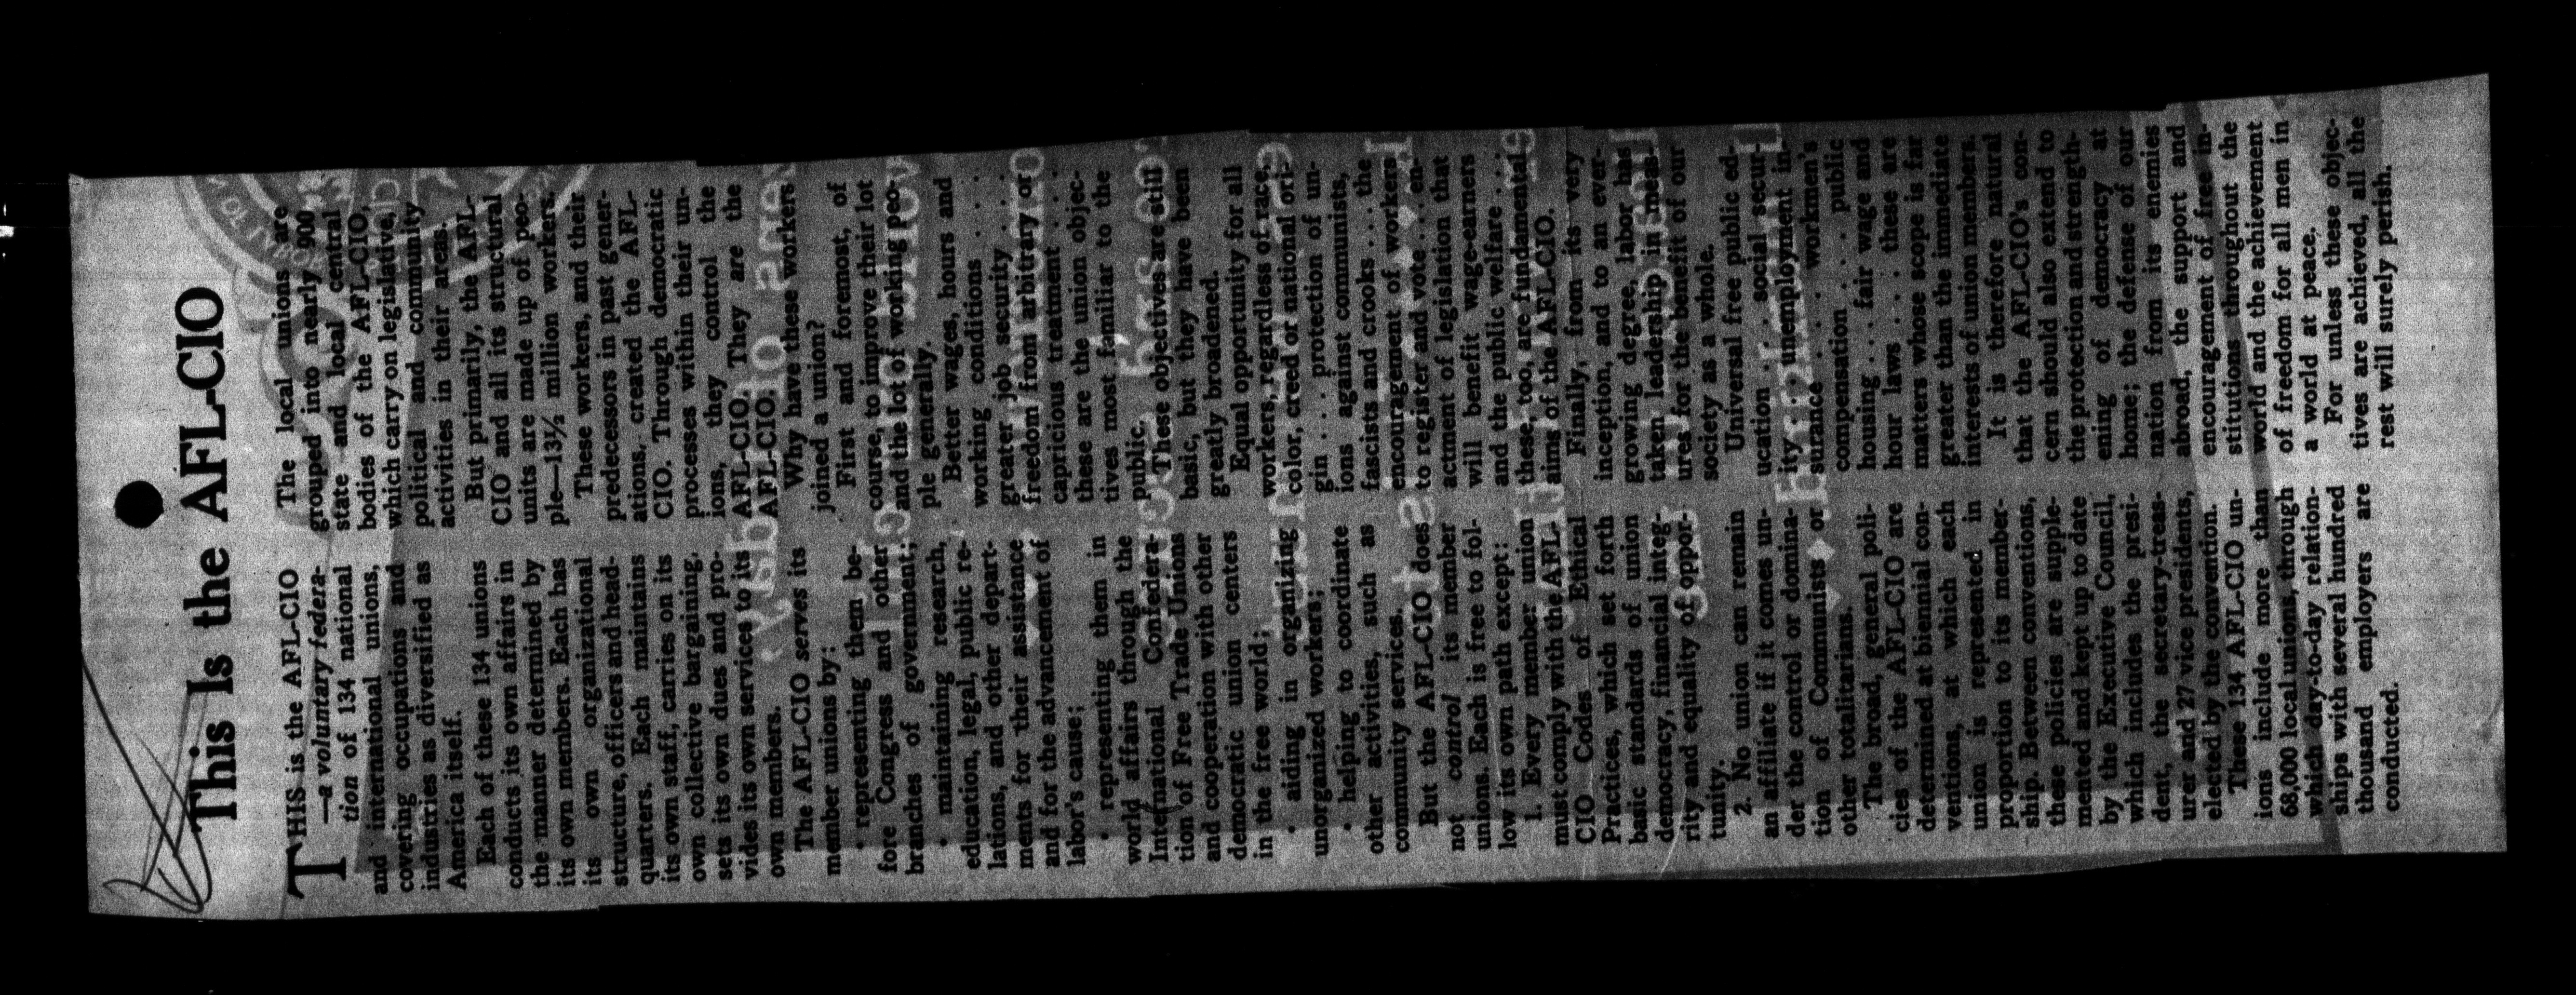 This Is the AFL-CIO
THIS is the AFL-CIO
—a voluntary federa-
tion of 134 national
and international unions,
covering occupations and
industries as diversified as
America itself.
Each of these 134 unions
conducts its own affairs in
the manner determined by
its own members. Each has
its own organizational
structure, offices and head-
quarters. Each maintains
its own staff, carries on its
own collective bargaining,
sets its own dues and pro-
vides its own services to its
own members.
The AFL-CIO serves its
member unions by:
• representing them be-
fore Congress and other
branches of government;
• maintaining research,
education, legal, public re-
lations, and other depart-
ments for their assistance
and for the advancement of
labor's cause;
• representing them in
world affairs through the
International Confedera-
tion of Free Trade Unions
and cooperation with other
democratic union centers
in the free world;
• aiding in organizing
unorganized workers;
• helping to coordinate
other activities, such as
community services.
But the AFL-CIO does
not control its member
unions. Each is free to fol-
low its own path except:
1. Every member union
must comply with the AFL-
CIO Codes of Ethical
Practices, which set forth
basic standards of union
democracy, financial integ-
rity and equality of oppor-
tunity.
2. No union can remain
an affiliate if it comes un-
der the control or domina-
tion of Communists or
other totalitarians.
The broad, general poli-
cies of the AFL-CIO are
determined at biennial con-
ventions, at which each
union is represented in
proportion to its member-
ship. Between conventions,
these policies are supple-
mented and kept up to date
by the Executive Council,
which includes the presi-
dent, the secretary-treas-
urer and 27 vice presidents,
elected by the convention.
These 134 AFL-CIO un-
ions include more than
68,000 local unions, through
which day-to-day relation-
ships with several hundred
thousand employers are
conducted.
The local unions are
grouped into nearly 900
state and local central
bodies of the AFL-CIO,
which carry on legislative,
political and community
activities in their areas.
But primarily, the AFL-
CIO and all its structural
units are made up of peo-
ple—13½ million workers.
These workers, and their
predecessors in past gener-
ations, created the AFL-
CIO. Through democratic
processes within their un-
ions, they control the
AFL-CIO. They are the
AFL-CIO.
Why have these workers
joined a union?
First and foremost, of
course, to improve their lot
and the lot of working peo-
ple generally.
Better wages, hours and
working conditions . . . .
greater job security . . . .
freedom from arbitrary or
capricious treatment . . . .
these are the union objec-
tives most familiar to the
public.
These objectives are still
basic, but they have been
greatly broadened.
Equal opportunity for all
workers, regardless of race,
color, creed or national ori-
gin . . . protection of un-
ions against communists,
fascists and crooks . . . the
encouragement of workers
to register and vote . . . en-
actment of legislation that
will benefit wage-earners
and the public welfare . . .
these, too, are fundamental
aims of the AFL-CIO.
Finally, from its very
inception, and to an ever-
growing degree, labor has
taken leadership in meas-
ures for the benefit of our
society as a whole.
Universal free public ed-
ucation . . . social secur-
ity . . . unemployment in-
surance . . . workmen's
compensation . . . public
housing . . . fair wage and
hour laws . . . these are
matters whose scope is far
greater than the immediate
interests of union members.
It is therefore natural
that the AFL-CIO's con-
cern should also extend to
the protection and strength-
ening of democracy at
home; the defense of our
nation from its enemies
abroad, the support and
encouragement of free in-
stitutions throughout the
world and the achievement
of freedom for all men in
a world at peace.
For unless these objec-
tives are achieved, all the
rest will surely perish.